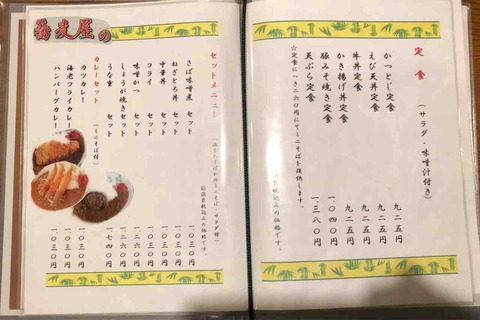 定食 (サラダ・味噌汁付き)
かつとじ定食 九二五円
えび天丼定食 九二五円
牛丼定食 九二五円
かき揚げ丼定食 九二五円
豚みそ焼き定食 一〇四〇円
天ぷら定食 一三八〇円
☆定食につき二六〇円にてミニそばを提供します。
税込みの価格です。
蕎麦屋の
セットメニュー
さば味噌煮 セット 一〇三〇円
ねぎとろ丼 セット 一〇三〇円
中華丼 セット 一〇三〇円
フライ セット 一〇三〇円
味噌かつ セット 一〇三〇円
しょうが焼き セット 一二六〇円
うな重 セット 一七四〇円
税込みの価格です。
カレーセット (ミニそば付)
カツカレー 一〇三〇円
海老フライカレー 一〇三〇円
ハンバーグカレー 一〇三〇円